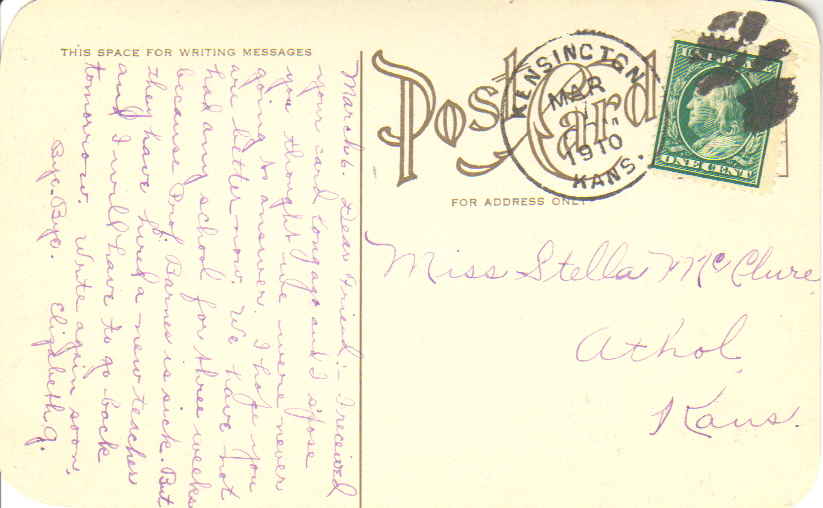 THIS SPACE FOR WRITING MESSAGES
March 6. Dear Friend:- I received
your card long ago and I s'pose
you thought we were never
going to answer. I hope you
are better now. We have not
had any school for three weeks
because Prof. Barnes is sick. But
they have hired a new teacher
and I will have to go back
tomorrow. Write again soon,
Bye-Bye. Elizabeth G.
Post Card
FOR ADDRESS ONLY
KENSINGTON
MAR
1910
KANS.
ONE CENT
Miss Stella McClure
Athol
Kans.